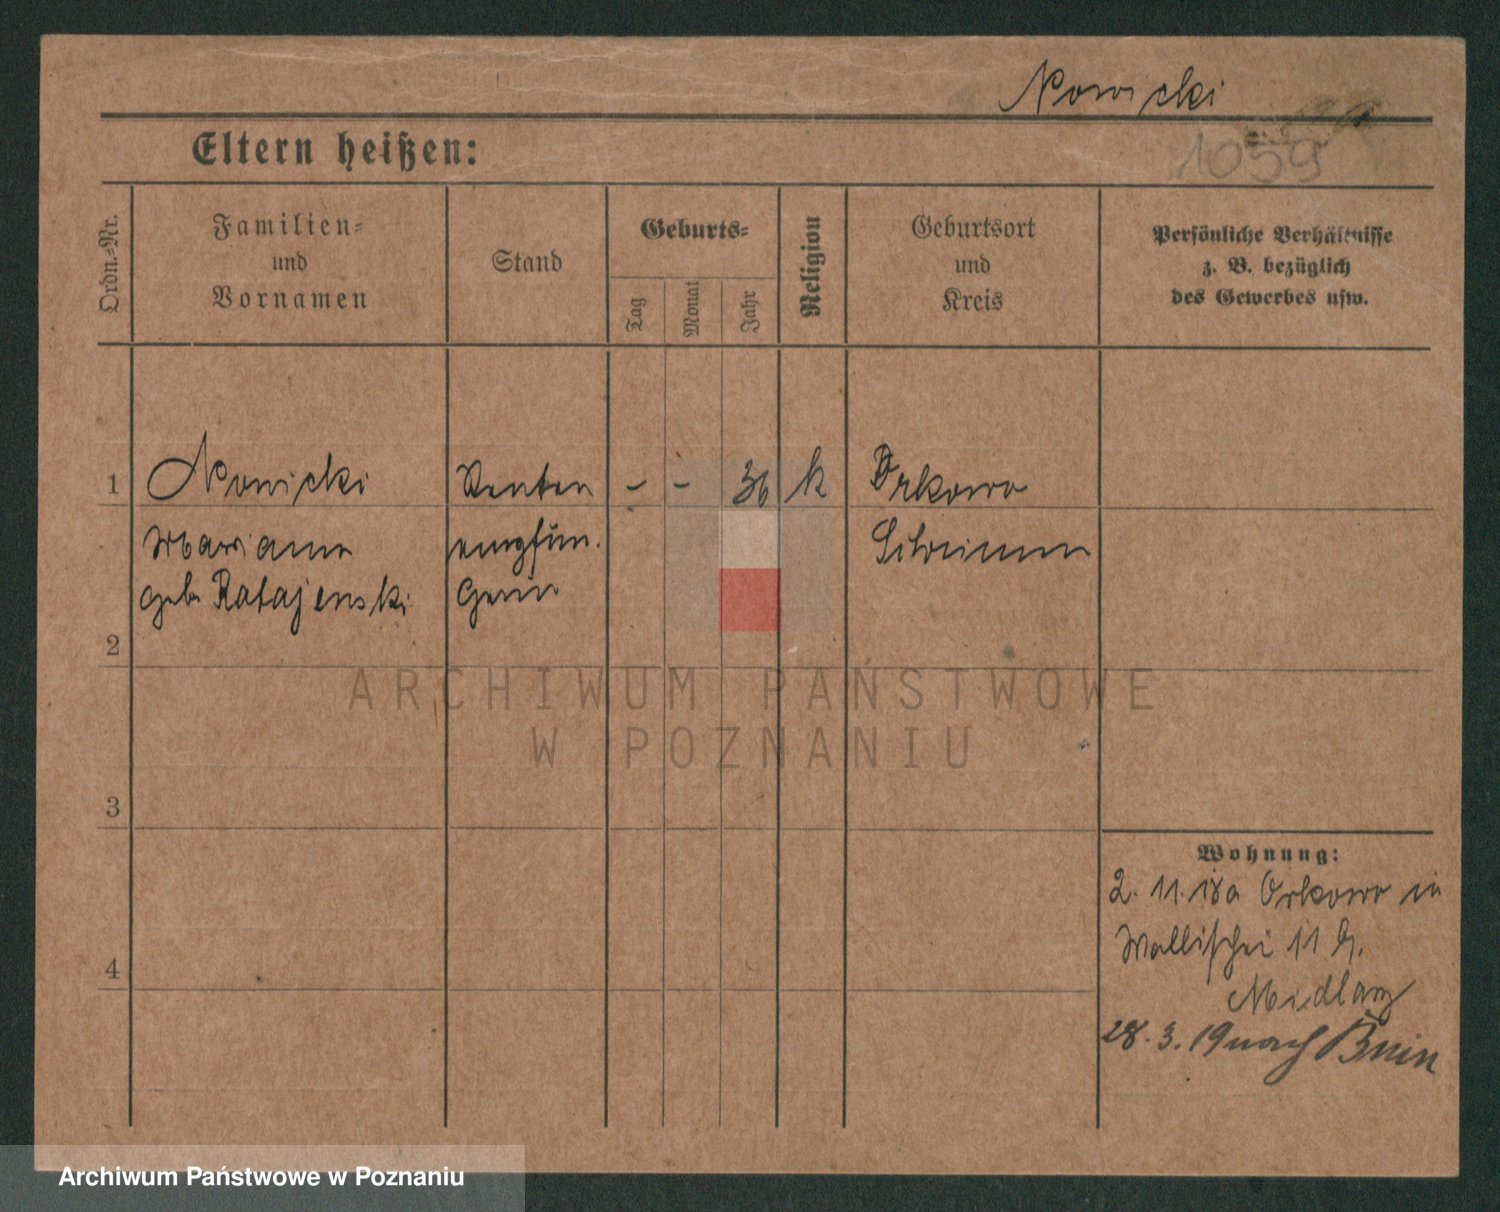 Nowicki
1059
Eltern heißen:
Ordn.-Nr.
Familien-
und
Vornamen
Stand
Geburts-
Tag
Monat
Jahr
Religion
Geburtsort
und
Kreis
Persönliche Verhältnisse
z. B. bezüglich
des Gewerbes usw.
1 Nowicki Renten - - 36 k Orkowo
Marianne empfän. Schrimm
geb Ratajenski gerin
2
3
4
Wohnung:
2. 11. 18 a Orkowo in
Wallischei 11 b.
Midlarz
28. 3. 19 nach Bnin
ARCHIWUM PAŃSTWOWE
W POZNANIU
Archiwum Państwowe w Poznaniu